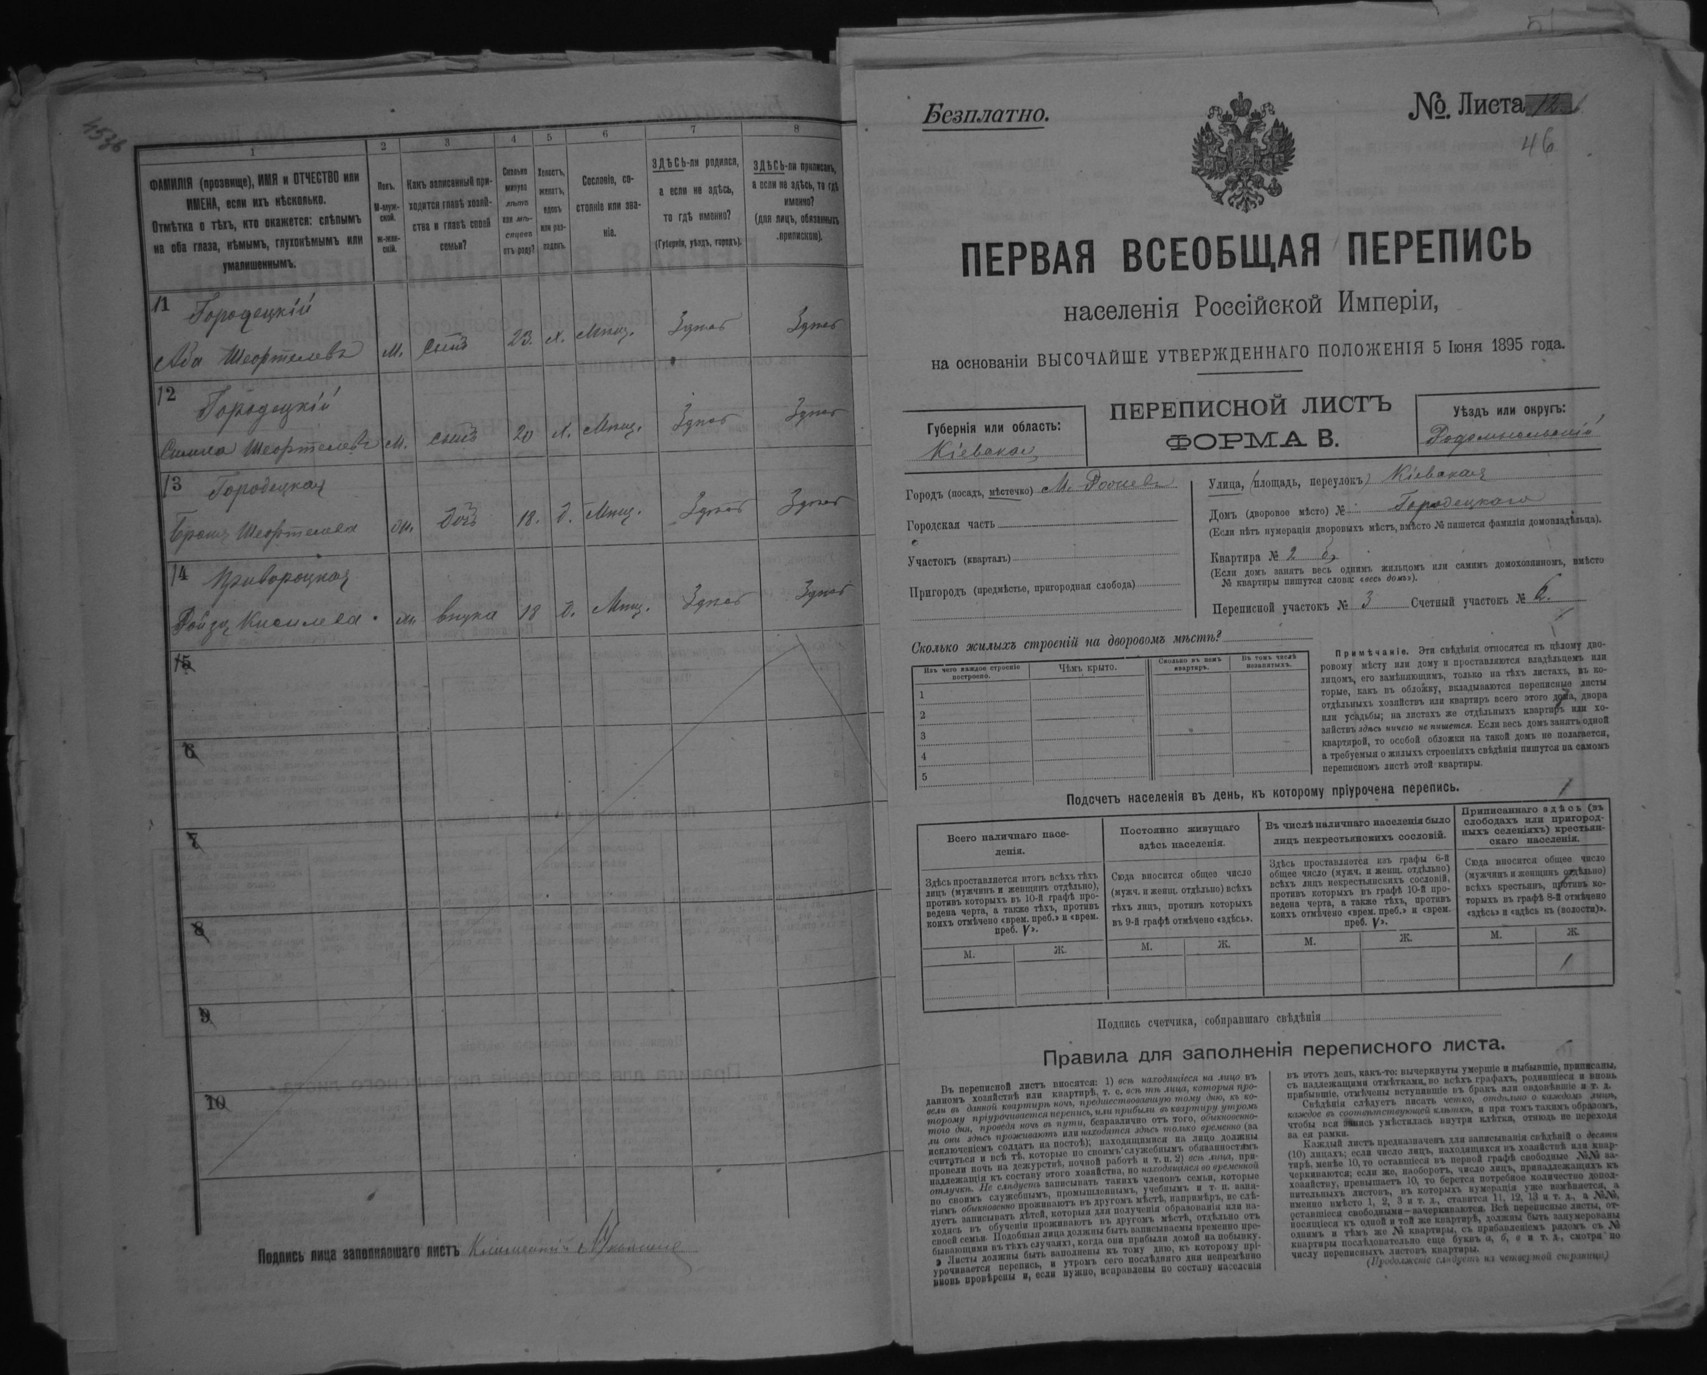 1
2
3
4
5
6
7
8
ФАМИЛІЯ (прозвище), ИМЯ и ОТЧЕСТВО или
ИМЕНА, если ихъ нѣсколько.
Отмѣтка о тѣхъ, кто окажется: слѣпымъ
на оба глаза, нѣмымъ, глухонѣмымъ или
умалишеннымъ.
Полъ.
М-муж-
ской.
ж-жен-
скій.
Какъ записанный при-
ходится главѣ хозяй-
ства и главѣ своей
семьи?
Сколько
минуло
лѣтъ
или мѣ-
сяцевъ
отъ роду?
Холостъ,
женатъ,
вдовъ
или раз-
веденъ.
Сословіе, со-
стояніе или зва-
ніе.
ЗДѢСЬ-ли родился,
а если не здѣсь,
то гдѣ именно?
(Губернія, уѣздъ, городъ).
ЗДѢСЬ-ли приписанъ,
а если не здѣсь, то гдѣ
именно?
(для лицъ, обязанныхъ
припискою).
11
Городецкій
м. сынъ 23. х. Мѣщ. Здѣсь Здѣсь
12
Городецкій
м. сынъ 20 х. Мѣщ. Здѣсь Здѣсь
13
Городецкая
дочь 18. д. Мѣщ. Здѣсь Здѣсь
14
внука 18 д. Мѣщ. Здѣсь Здѣсь
15
6
7
8
9
10
Подпись лица заполнявшаго листъ
Безплатно.
№. Листа
46
ПЕРВАЯ ВСЕОБЩАЯ ПЕРЕПИСЬ
населенія Россійской Имперіи,
на основаніи ВЫСОЧАЙШЕ УТВЕРЖДЕННАГО ПОЛОЖЕНІЯ 5 Іюня 1895 года.
Губернія или область:
Кіевская
ПЕРЕПИСНОЙ ЛИСТЪ
ФОРМА В.
Уѣздъ или округъ:
Радомысльскій
Городъ (посадъ, мѣстечко) М.
Городская часть
Участокъ (кварталъ)
Пригородъ (предмѣстье, пригородная слобода)
Улица, (площадь, переулокъ) Кіевская
Домъ (дворовое мѣсто) № Городецкаго
(Если нѣтъ нумераціи дворовыхъ мѣстъ, вмѣсто № пишется фамилія домовладѣльца).
Квартира № 2
(Если домъ занятъ весь однимъ жильцомъ или самимъ домохозяиномъ, вмѣсто
№ квартиры пишутся слова: «весь домъ»).
Переписной участокъ № 3 Счетный участокъ № 6.
Сколько жилыхъ строеній на дворовомъ мѣстѣ?
Изъ чего каждое строеніе
построено.
Чѣмъ крыто.
Сколько въ немъ
квартиръ.
Въ томъ числѣ
незанятыхъ.
1
2
3
4
5
Примѣчаніе. Эти свѣдѣнія относятся къ цѣлому дво-
ровому мѣсту или дому и проставляются владѣльцемъ или
лицомъ, его замѣняющимъ, только на тѣхъ листахъ, въ ко-
торые, какъ въ обложку, вкладываются переписные листы
отдѣльныхъ хозяйствъ или квартиръ всего этого дома, двора
или усадьбы; на листахъ же отдѣльныхъ квартиръ или хо-
зяйствъ здѣсь ничего не пишется. Если весь домъ занятъ одной
квартирой, то особой обложки на такой домъ не полагается,
а требуемыя о жилыхъ строеніяхъ свѣдѣнія пишутся на самомъ
переписномъ листѣ этой квартиры.
Подсчетъ населенія въ день, къ которому пріурочена перепись.
Всего наличнаго насе-
ленія.
Постоянно живущаго
здѣсь населенія.
Въ числѣ наличнаго населенія было
лицъ некрестьянскихъ сословій.
Приписаннаго здѣсь (въ
слободахъ или пригород-
ныхъ селеніяхъ) крестьян-
скаго населенія.
Здѣсь проставляется итогъ всѣхъ тѣхъ
лицъ (мужчинъ и женщинъ отдѣльно),
противъ которыхъ въ 10-й графѣ про-
ведена черта, а также тѣхъ, противъ
коихъ отмѣчено «врем. преб.» и «врем.
преб. V».
Сюда вносится общее число
(мужч. и женщ. отдѣльно) всѣхъ
тѣхъ лицъ, противъ которыхъ
въ 9-й графѣ отмѣчено «здѣсь».
Здѣсь проставляется изъ графы 6-й
общее число (мужч. и женщ. отдѣльно)
всѣхъ лицъ некрестьянскихъ сословій,
противъ которыхъ въ графѣ 10-й про-
ведена черта, а также тѣхъ, противъ
коихъ отмѣчено «врем. преб.» и «врем.
преб. V».
Сюда вносится общее число
(мужчинъ и женщинъ отдѣльно)
всѣхъ крестьянъ, противъ ко-
торыхъ въ графѣ 8-й отмѣчено
«здѣсь» и «здѣсь къ (волости)».
М. Ж. М. Ж. М. Ж. М. Ж.
Подпись счетчика, собиравшаго свѣдѣнія
Правила для заполненія переписного листа.
Въ переписной листъ вносятся: 1) всѣ находящіеся на лицо въ
данномъ хозяйствѣ или квартирѣ, т. е. всѣ тѣ лица, которыя про-
вели въ данной квартирѣ ночь, предшествовавшую тому дню, къ ко-
торому пріурочивается перепись, или прибыли въ квартиру утромъ
того дня, проведя ночь въ пути, безразлично отъ того, обыкновенно-
ли они здѣсь проживаютъ или находятся здѣсь только временно (за
исключеніемъ солдатъ на постоѣ); находящимися на лицо должны
считаться и всѣ тѣ, которые по своимъ служебнымъ обязанностямъ
провели ночь на дежурствѣ, ночной работѣ и т. п. 2) всѣ лица, при-
надлежащія къ составу этого хозяйства, но находящіяся во временной
отлучкѣ. Не слѣдуетъ записывать такихъ членовъ семьи, которые
по своимъ служебнымъ, промышленнымъ, учебнымъ и т. п. заня-
тіямъ обыкновенно проживаютъ въ другомъ мѣстѣ, напримѣръ, не слѣ-
дуетъ записывать дѣтей, которыя для полученія образованія или на-
ходясь въ обученіи проживаютъ въ другомъ мѣстѣ, отдѣльно отъ
своей семьи. Подобныя лица должны быть записываемы временно пре-
бывающими въ тѣхъ случаяхъ, когда они прибыли домой на побывку.
Листы должны быть заполнены къ тому дню, къ которому прі-
урочивается перепись, и утромъ сего послѣдняго дня непремѣнно
вновь провѣрены и, если нужно, исправлены по составу населенія
въ этотъ день, какъ-то: вычеркнуты умершіе и выбывшіе, приписаны,
съ надлежащими отмѣтками, во всѣхъ графахъ, родившіеся и вновь
прибывшіе, отмѣчены вступившіе въ бракъ или овдовѣвшіе и т. д.
Свѣдѣнія слѣдуетъ писать четко, отдѣльно о каждомъ лицѣ,
каждое въ соотвѣтствующей клѣткѣ, и при томъ такимъ образомъ,
чтобы вся запись умѣстилась внутри клѣтки, отнюдь не переходя
за ея рамки.
Каждый листъ предназначенъ для записыванія свѣдѣній о десяти
(10) лицахъ; если число лицъ, находящихся въ хозяйствѣ или квар-
тирѣ, менѣе 10, то оставшіеся въ первой графѣ свободные №№ за-
черкиваются; если же, наоборотъ, число лицъ, принадлежащихъ къ
хозяйству, превышаетъ 10, то берется потребное количество допол-
нительныхъ листовъ, въ которыхъ нумерація уже измѣняется, а
именно вмѣсто 1, 2, 3 и т. д., ставится 11, 12, 13 и т. д., а №№,
оставшіеся свободными—зачеркиваются. Всѣ переписные листы, от-
носящіеся къ одной и той же квартирѣ, должны быть занумерованы
однимъ и тѣмъ же № квартиры, съ прибавленіемъ рядомъ съ №
квартиры послѣдовательно еще буквъ а, б, в и т. д., смотря по
числу переписныхъ листовъ квартиры.
(Продолженіе слѣдуетъ на четвертой страницѣ)